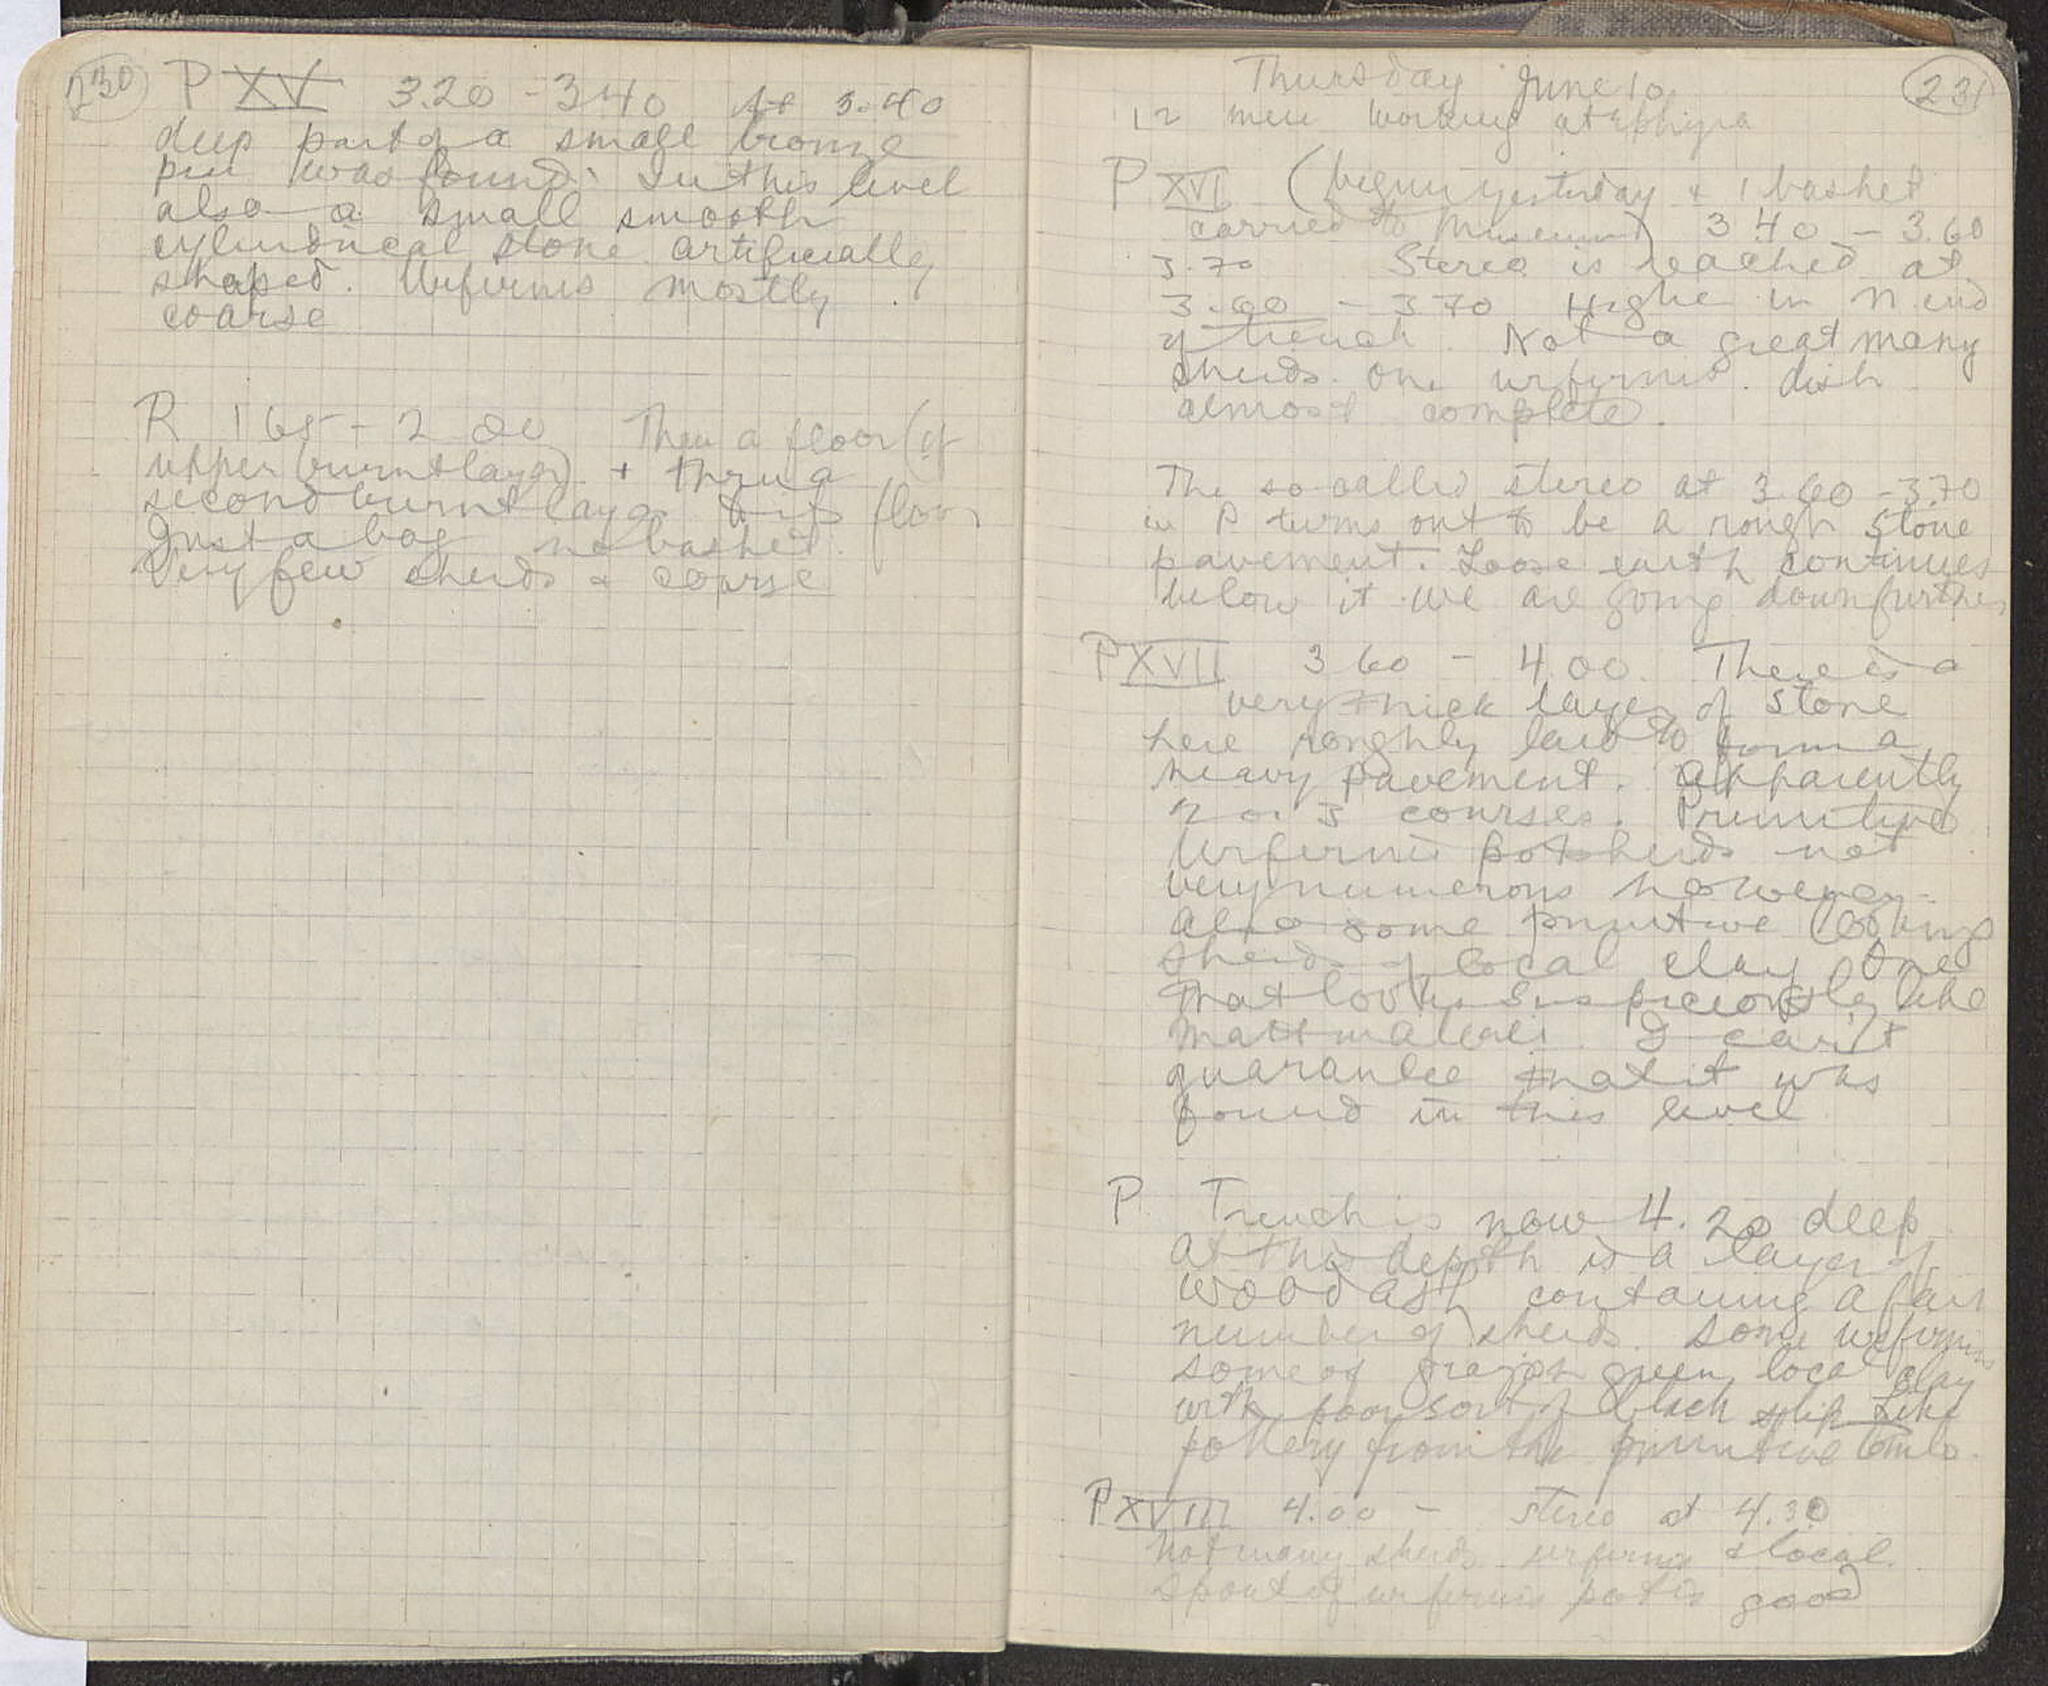 230
P XV 3.20 - 340 At 3.40
deep part of a small bronze
pin was found. In this level
also a small smooth
cylindrical stone artificially
shaped. Urfirnis mostly
coarse
R 165 - 2 00 Then a floor (of
upper burnt layer) + thru a
second burnt layer to its floor
Just a bag no basket.
Very few sherds & coarse
Thursday June 10 231
12 men working at Ephyra
P XVI (begun yesterday & 1 basket
carried to Museum) 3 40 - 3.60
3.70 Stereo is reached at
3.60 - 370 Highe in N end
of trench. Not a great many
sherds. One urfirnis dish
almost complete.
The so-called stereo at 3.60 - 3.70
in P turns out to be a rough stone
pavement. Loose earth continues
below it we are going down further
P XVII 3 60 - 4.00 There is a
very thick layer of stone
here roughly laid to form a
heavy pavement. Apparently
2 or 3 courses. Primitive
Urfirnis potsherds not
very numerous however.
Also some primitive looking
sherds of local clay One
that looks suspiciously like
Mattmalerei. I can't
guarantee that it was
found in this level
P. Trench is now 4.20 deep
At this depth is a layer of
wood ash containing a fair
number of sherds. Some urfirnis
some of grayish green local clay
with poor sort of black slip Like
pottery from the primitive tombs.
P XVIII 4.00 - Stereo at 4.30
Not many sherds urfirnis & local.
Spout of urfirnis pot is good